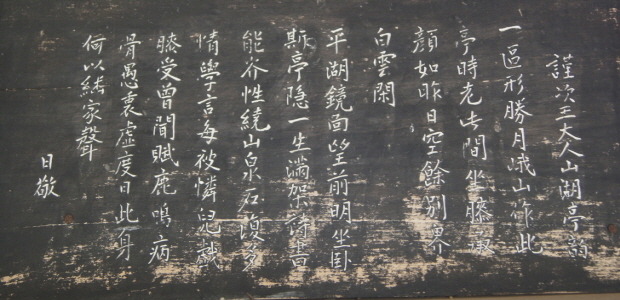 謹次王大人山湖亭韻
一區形勝月峨山作此
亭時老此間坐膝承
顔如昨日空餘別界
白雲閑
平湖鏡面望前明坐卧
斯亭隐一生滿架詩書
能谷性繞山泉石復多
情學言每被憐兒戯
膝受曾聞賦鹿鳴病
骨愚衷虛度日此身
何以繼家聲
日敬